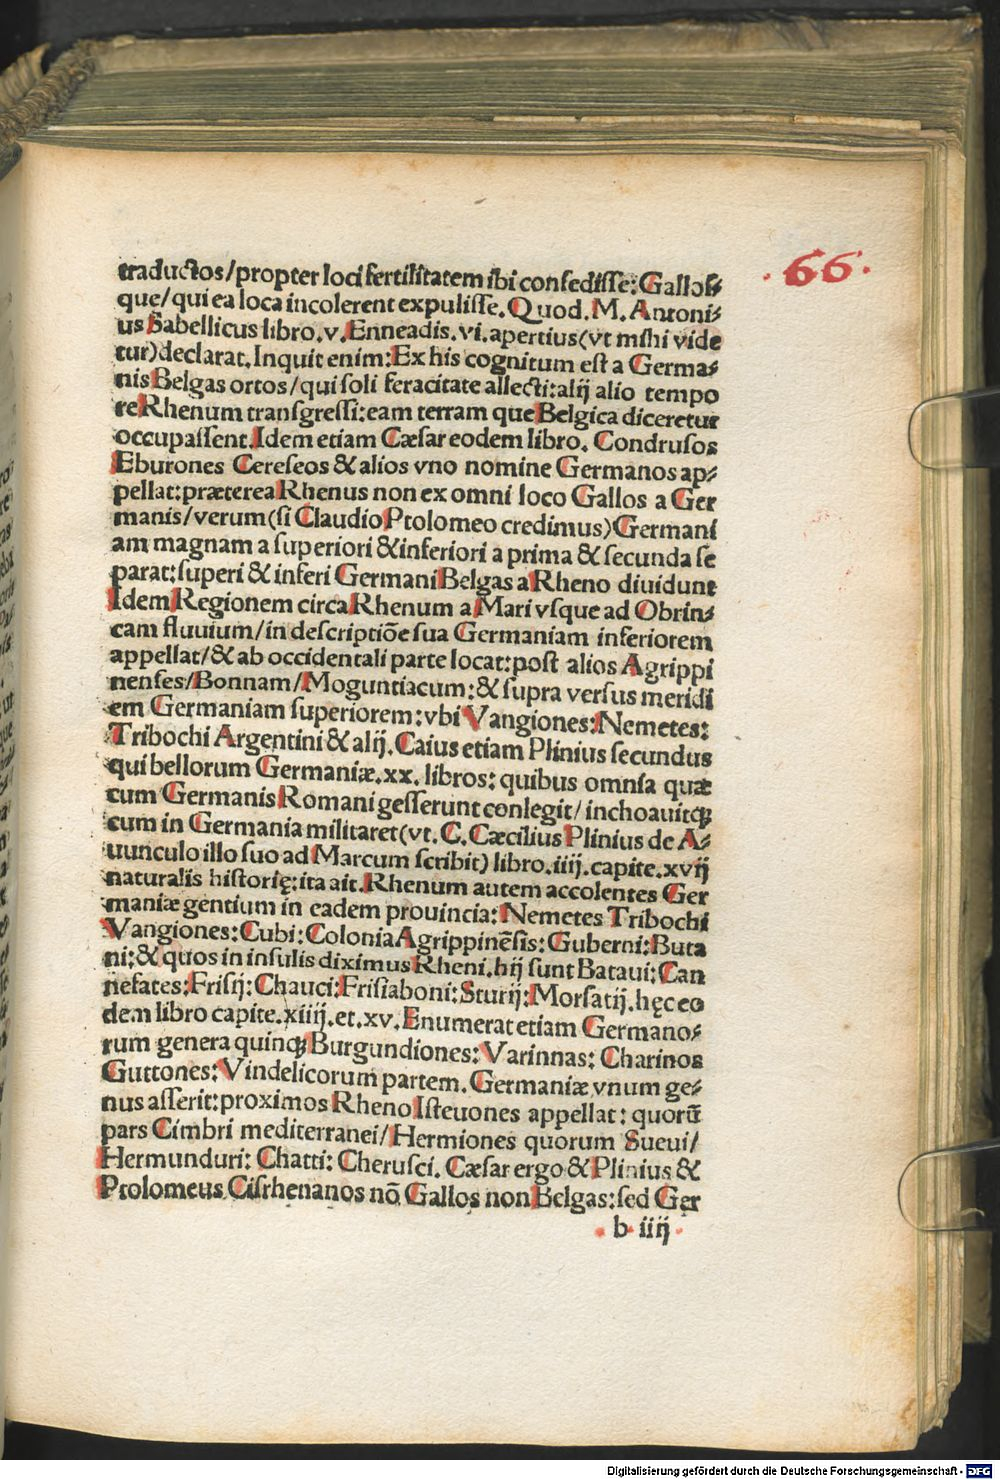 66.
traductos/propter loci fertilitatem ibi consedisse: Gallos⸗
que/qui ea loca incolerent expulisse. Quod. M. Antoni⸗
us Sabellicus libro. v. Enneadis. vi. apertius (vt mihi vide
tur) declarat. Inquit enim: Ex his cognitum est a Germa⸗
nis Belgas ortos/qui soli feracitate allecti: alij alio tempo
re Rhenum transgressi: eam terram que Belgica diceretur
occupassent. Idem etiam Cæsar eodem libro. Condrusos
Eburones Cereseos & alios vno nomine Germanos ap⸗
pellat: præterea Rhenus non ex omni loco Gallos a Ger
manis/verum (si Claudio Ptolomeo credimus) Germani
am magnam a superiori & inferiori a prima & secunda se
parat: superi & inferi Germani Belgas a Rheno diuidunt
Idem Regionem circa Rhenum a Mari vsque ad Obrin⸗
cam fluuium/in descriptiõe sua Germaniam inferiorem
appellat/& ab occidentali parte locat: post alios Agrippi
nenses/Bonnam/Moguntiacum: & supra versus meridi
em Germaniam superiorem: vbi Vangiones: Nemetes:
Tribochi Argentini & alij. Caius etiam Plinius secundus
qui bellorum Germaniæ. xx. libros: quibus omnia quæ
cum Germanis Romani gesserunt conlegit/ inchoauitqꝫ
cum in Germania militaret (vt. C. Cæcilius Plinius de A⸗
uunculo illo suo ad Marcum scribit) libro. iiij. capite. xvij
naturalis historię: ita ait. Rhenum autem accolentes Ger
maniæ gentium in eadem prouincia: Nemetes Tribochi
Vangiones: Cubi: Colonia Agrippinẽsis: Guberni: Buta
ni: & quos in insulis diximus Rheni. hij sunt Bataui: Can
nefates: Frisij: Chauci: Frisiaboni: Sturij: Morsatij. hęc eo
dem libro capite. xiiij. et. xv. Enumerat etiam Germano⸗
rum genera quinqꝫ Burgundiones: Varinnas: Charinos
Guttones: Vindelicorum partem. Germaniæ vnum ge⸗
nus asserit: proximos Rheno Isteuones appellat: quorũ
pars Cimbri mediterranei/Hermiones quorum Sueui/
Hermunduri: Chatti: Cherusci. Cæsar ergo & Plinius &
Ptolomeus Cisrhenanos nõ Gallos non Belgas: sed Ger
b iiij
Digitalisierung gefördert durch die Deutsche Forschungsgemeinschaft - DFG